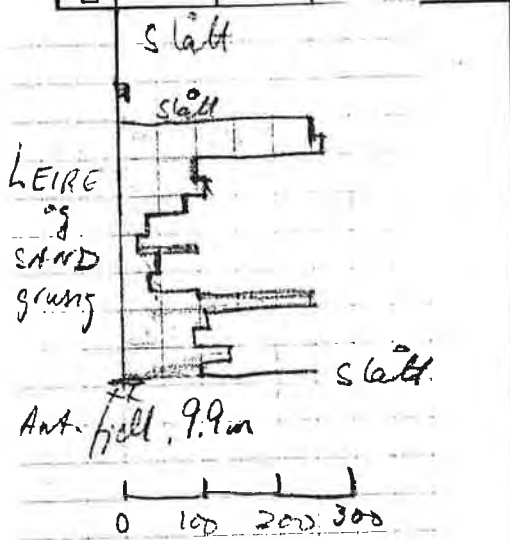 slått
slått
LEIRE
og
SAND
grusig
slått.
Ant. fjell. 9.9m
0 100 200 300